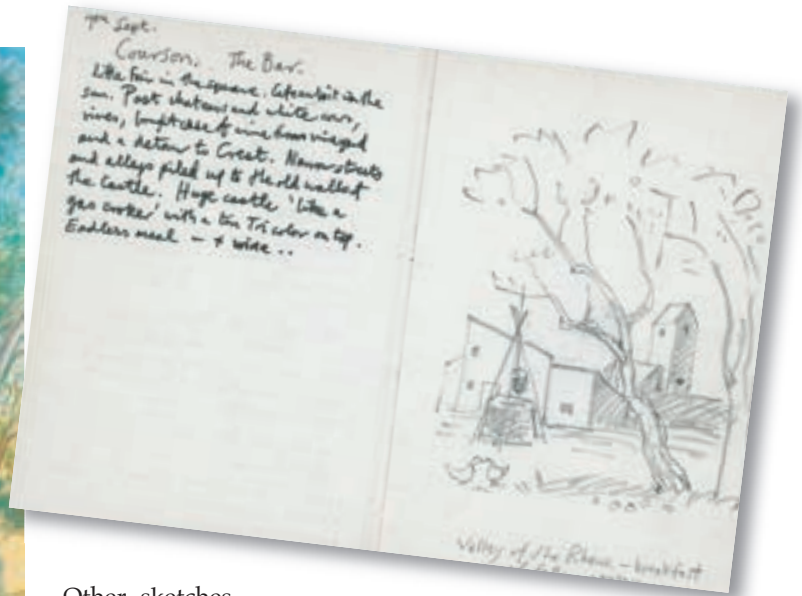 7th Sept.
Courson. The Bar.
Little Fair in the square. in the
sun. Past chateaux and white cows,
rivers, bought case of wine from vineyard
and a detour to Crest. Narrow streets
and alleys piled up to the old walls of
the castle. Huge castle 'like a
gas cooker' with a tin Tricolor on top.
Endless meal – + wine ..
Valley of the Rhone – breakfast
Other sketches